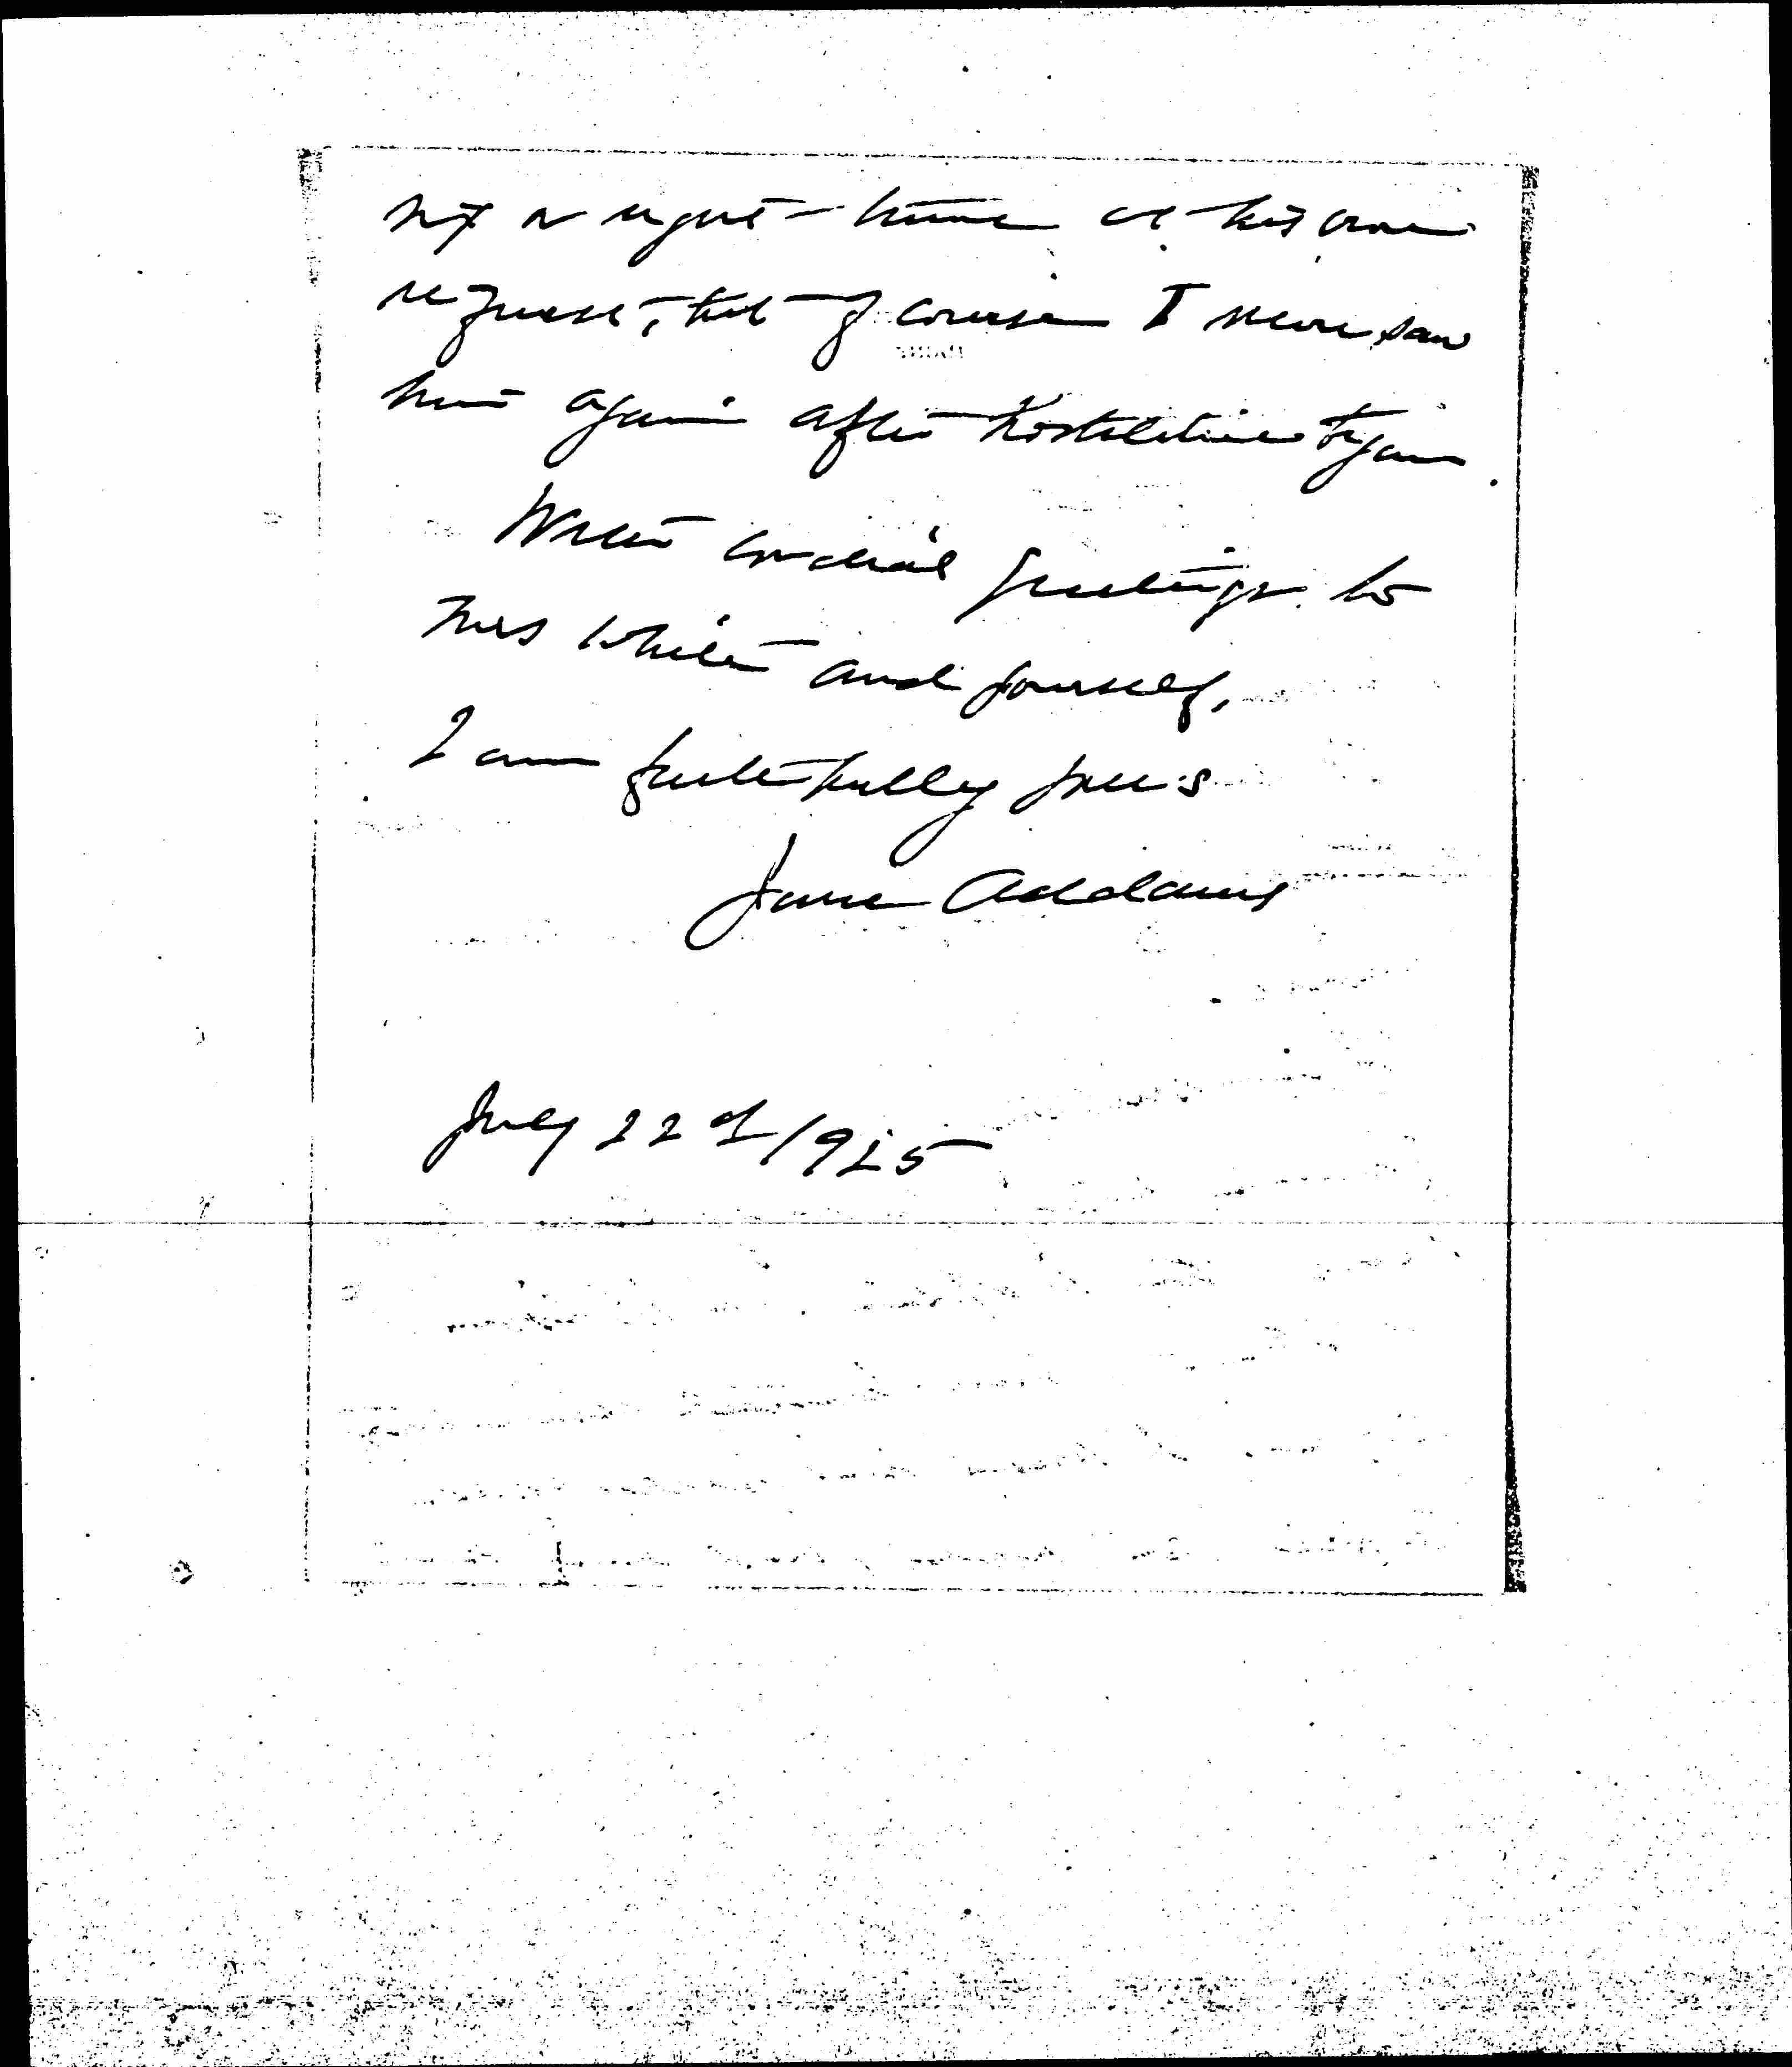 six or eight times at his own
request, but of course I never saw
him again after hostilities began.
With cordial greetings to
Mrs White and yourself,
I am faithfully yours
Jane Addams
July 22d 1925